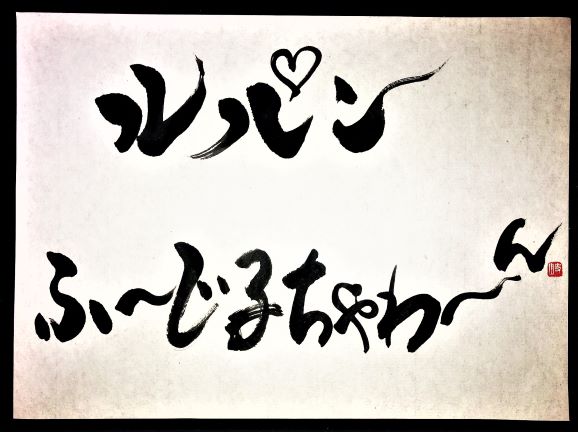 ルパン
ふ〜じ子ちゃわ〜ん